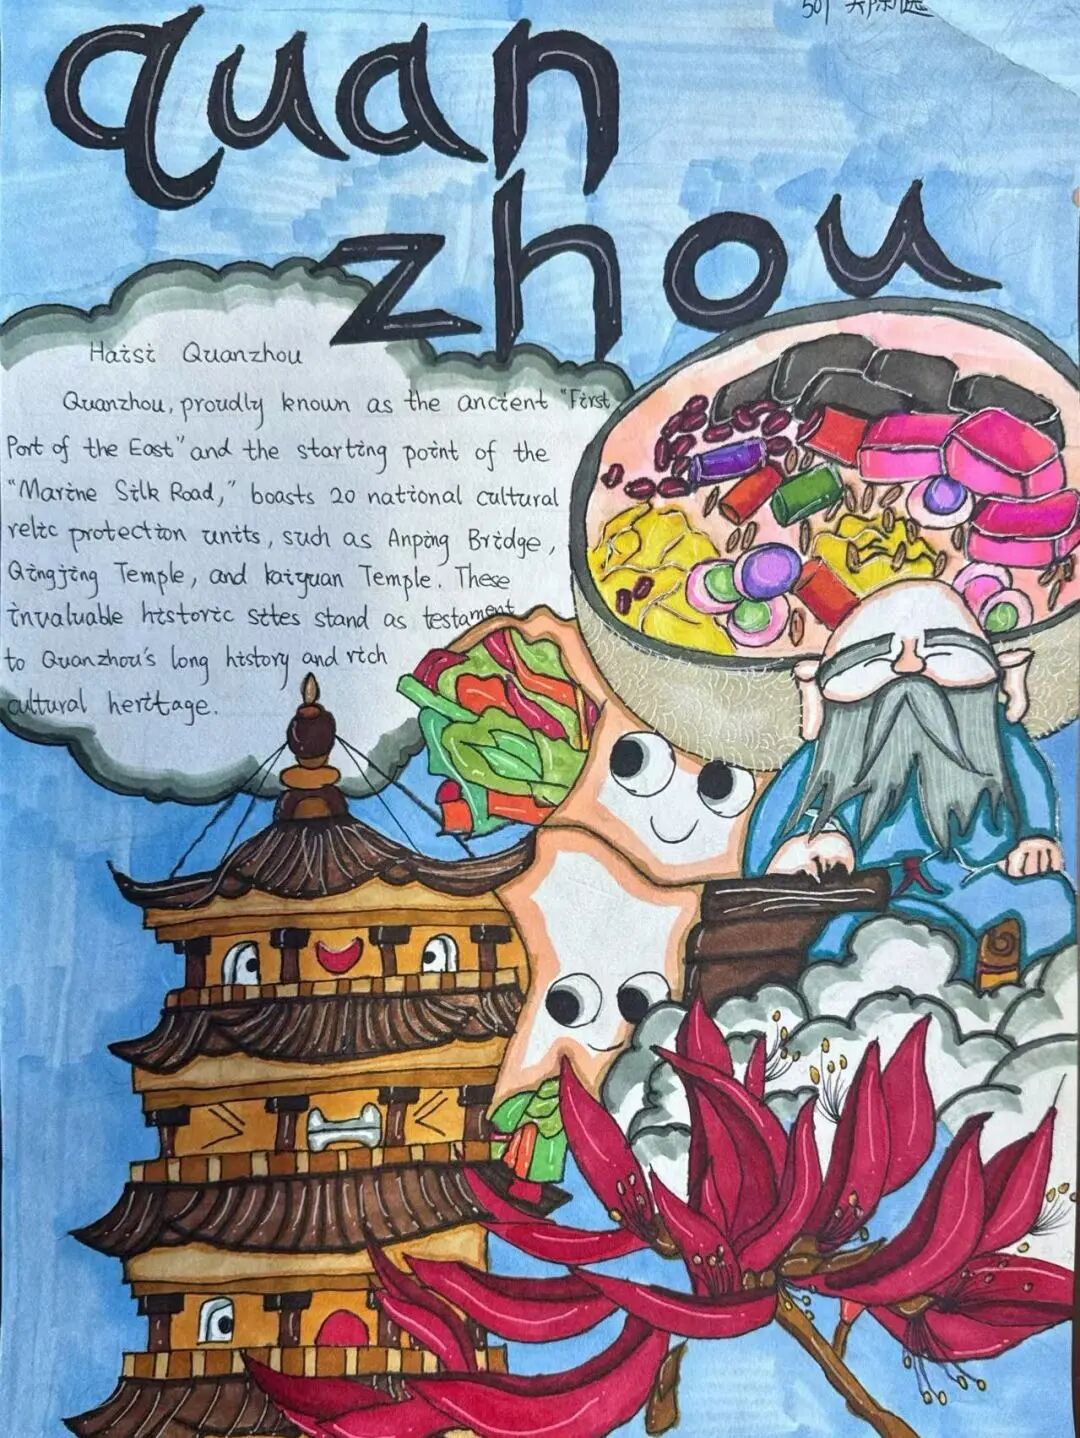 quan
zhou
Haisi Quanzhou
Quanzhou, proudly known as the ancient "First
Port of the East" and the starting point of the
"Marine Silk Road," boasts 20 national cultural
relic protection units, such as Anping Bridge,
Qingjing Temple, and kaiyuan Temple. These
invaluable historic sites stand as testament
to Quanzhou's long history and rich
cultural heritage.